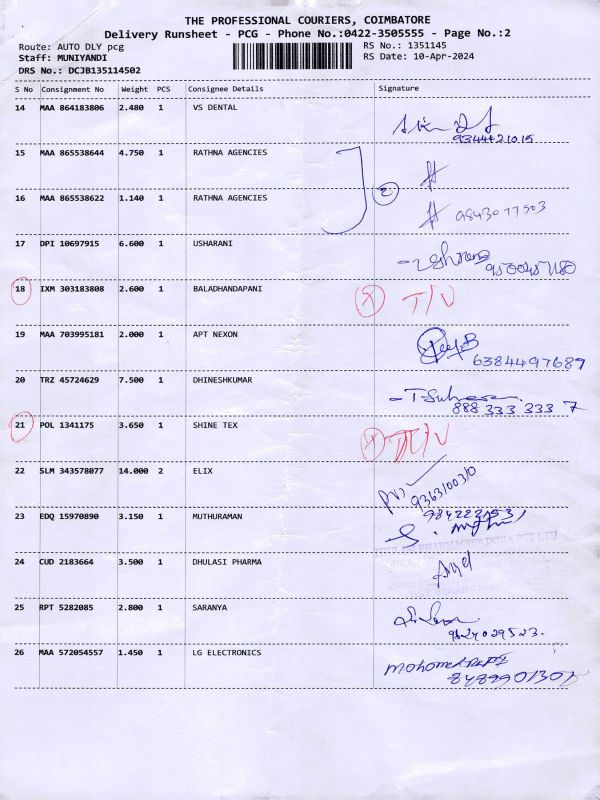 THE PROFESSIONAL COURIERS, COIMBATORE
Delivery Runsheet - PCG - Phone No.:0422-3505555 - Page No.:2
Route: AUTO DLY pcg RS No.: 1351145
Staff: MUNIYANDI RS Date: 10-Apr-2024
DRS No.: DCJB135114502
S No Consignment No Weight PCS Consignee Details Signature
14 MAA 864183806 2.480 1 VS DENTAL
9344421015
15 MAA 865538644 4.750 1 RATHNA AGENCIES
2
16 MAA 865538622 1.140 1 RATHNA AGENCIES
9843077503
17 DPI 10697915 6.600 1 USHARANI
18 IXM 303183808 2.600 1 BALADHANDAPANI X T/V
19 MAA 703995181 2.000 1 APT NEXON
6384497689
20 TRZ 45724629 7.500 1 DHINESHKUMAR
888 333 333 7
21 POL 1341175 3.650 1 SHINE TEX
22 SLM 343578077 14.000 2 ELIX
23 EDQ 15970890 3.150 1 MUTHURAMAN
24 CUD 2183664 3.500 1 DHULASI PHARMA
25 RPT 5282085 2.800 1 SARANYA
26 MAA 572054557 1.450 1 LG ELECTRONICS